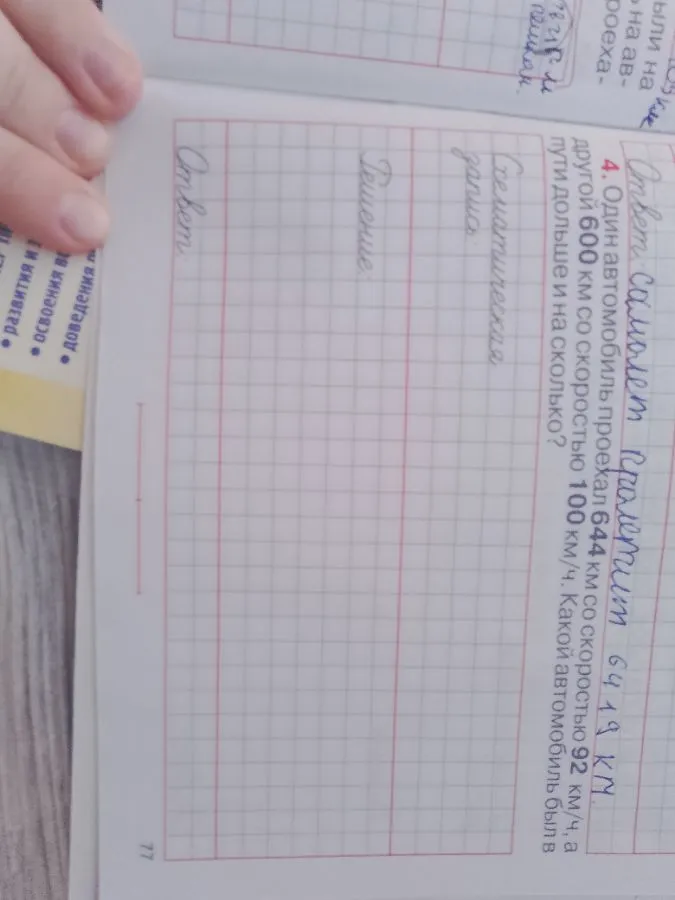 ыли на
на ав-
роеха-
Ответ самолет пролетит 6419 км.
4. Один автомобиль проехал 644 км со скоростью 92 км/ч, а
другой 600 км со скоростью 100 км/ч. Какой автомобиль был в
пути дольше и на сколько?
Схематическая
запись
Решение
Ответ
77